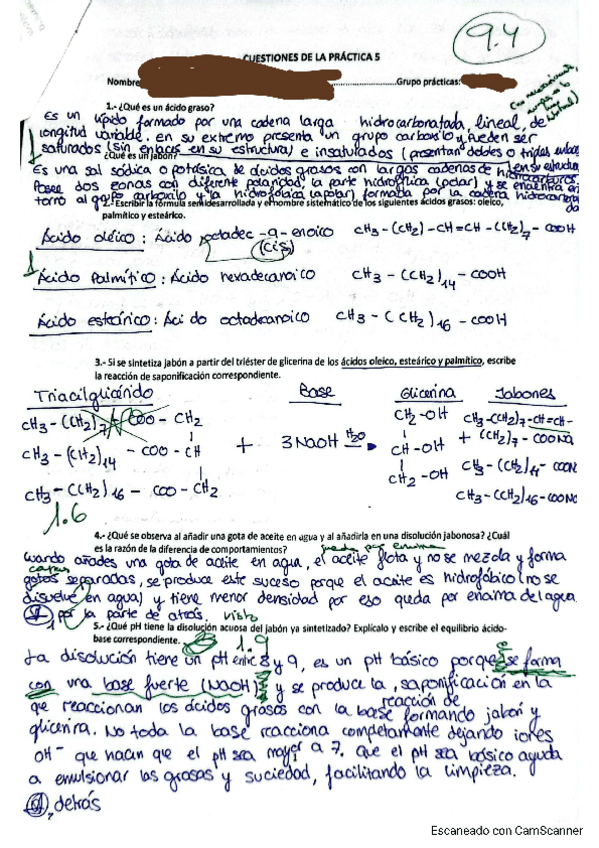 9.4
CUESTIONES DE LA PRÁCTICA 5
Nombre Grupo prácticas:
1.- ¿Qué es un ácido graso?
Es un lípido formado por una cadena larga hidrocarbonatada, lineal, de
longitud variable. en su extremo presenta un grupo carboxilo y pueden ser
saturados (sin enlaces en su estructura) e insaturados (presentan dobles o triples enlaces
¿Qué es un jabón? en su estructura
Es una sal sódica o potásica de ácidos grasos con largas cadenas de hidrocarburos
Posee dos zonas con diferente polaridad, la parte hidrofílica (polar) y se encuentra en
torno al grupo carboxilo y la hidrofóbica (apolar) formada por la cadena hidrocarbonada
2.- Escribir la fórmula semidesarrollada y el nombre sistemático de los siguientes ácidos grasos: oleico,
palmítico y esteárico.
Ácido oléico: Ácido octadec-9-enoico CH3-(CH2)-CH=CH-(CH2)7-COOH
(cis)
Ácido Palmítico: Ácido hexadecanoico CH3-(CH2)14-COOH
Ácido esteárico: Ácido octadecanoico CH3-(CH2)16-COOH
3.- Si se sintetiza jabón a partir del triéster de glicerina de los ácidos oleico, esteárico y palmítico, escribe
la reacción de saponificación correspondiente.
Triacilglicérido Base Glicerina Jabones
CH3-(CH2)7 COO-CH2 CH2-OH CH3-(CH2)7-CH=CH-
CH3-(CH2)14-COO-CH + 3NaOH H2O CH-OH + (CH2)7-COONa
CH3-(CH2)16-COO-CH2 CH2-OH CH3-(CH2)14-COON
CH3-(CH2)16-COONa
1.6
4.- ¿Qué se observa al añadir una gota de aceite en agua y al añadirla en una disolución jabonosa? ¿Cuál
es la razón de la diferencia de comportamientos? queda por encima
cuando añades una gota de aceite en agua, el aceite flota y no se mezcla y forma
capas
gotas separadas, se produce este suceso porque el aceite es hidrofóbico (no se
disuelve en agua) y tiene menor densidad por eso queda por encima del agua.
por la parte de atrás. visto
5.- ¿Qué pH tiene la disolución acuosa del jabón ya sintetizado? Explícalo y escribe el equilibrio ácido-
base correspondiente. 1.9
La disolución tiene un pH entre 8 y 9, es un pH básico porque se forma
con una base fuerte (NaOH) y se produce la saponificación en la
reacción de
que reaccionan los ácidos grasos con la base formando jabón y
glicerina. No toda la base reacciona completamente dejando iones
OH- que hacen que el pH sea mayor a 7. que el pH sea básico ayuda
a emulsionar las grasas y suciedad, facilitando la limpieza.
detrás
Escaneado con CamScanner